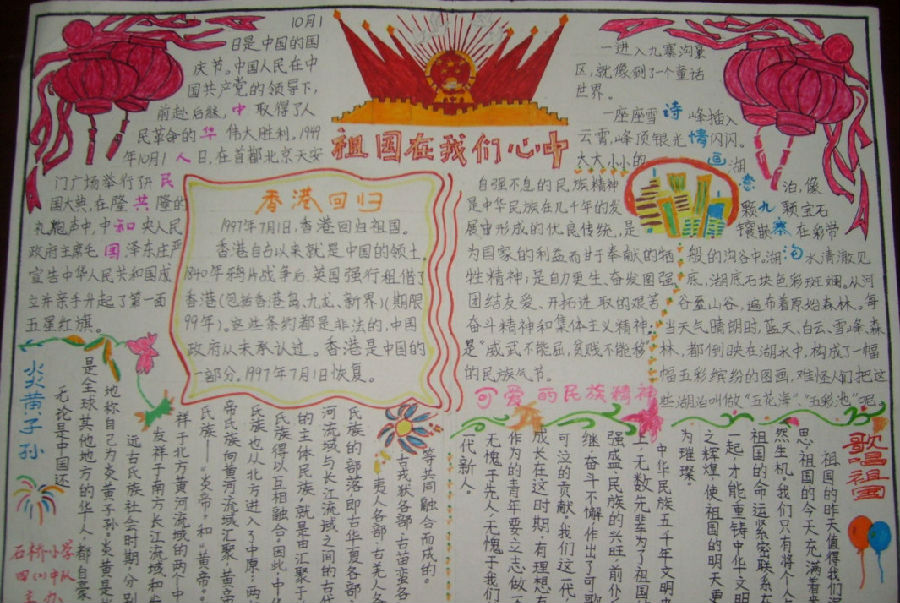 祖国在我们心中
10月1
日是中国的国
庆节。中国人民在中
国共产党的领导下,
前赴后继,取得了人
民革命的伟大胜利,1949
年10月1日,在首都北京天安
门广场举行开
国大典,在隆隆的
礼炮声中,中央人民
政府主席毛泽东庄严
宣告中华人民共和国成
立并亲手升起了第一面
五星红旗。
中华人民共和国
香港回归
1997年7月1日,香港回归祖国。
香港自古以来就是中国的领土,
1840年鸦片战争后,英国强行租借了
香港(包括香港岛、九龙、新界)(期限
99年)。这些条约都是非法的,中国
政府从未承认过。香港是中国的
一部分,1997年7月1日恢复。
自强不息的民族精神
是中华民族在几千年的发
展中形成的优良传统,是
为国家的利益而甘于奉献的牺
牲精神;是自助更生、奋发图强、
团结友爱、开拓进取的艰苦
奋斗精神和集体主义精神;
是“威武不能屈,贫贱不能移”
的民族气节。
可爱的民族精神
一进入九寨沟景
区,就像到了一个童话
世界。
一座座雪峰插入
云霄,峰顶银光闪闪。
大大小小的湖
泊,像
颗颗宝石
镶嵌在彩带
般的沟谷中。湖水清澈见
底,湖底石块色彩斑斓。从河
谷至山谷,遍布着原始森林。每
当天气晴朗时,蓝天、白云、雪峰、森
林,都倒映在湖水中,构成了一幅
幅五彩缤纷的图画,难怪人们把这
些湖泊叫做“五花海”、“五彩池”呢。
诗情画态九寨沟
炎黄子孙
无论是中国还
是全球其他地方的华人,都自豪
地称自己为炎黄子孙。炎黄是
远古民族社会时期,分别
发祥于南方长江流域和
祥于北方黄河流域的两个
民族——“炎帝”和“黄帝”。
帝氏族向黄河流域汇聚,黄帝
民族也从北方进入了中原;两
民族得以互相融合。因此,中华
的主体民族,就是由汇聚于
河流域与长江流域之间的古代
民族的部落即古华夏各部
夷人各部,古羌人各
古戎狄各部,古苗蛮各
等共同融合而成的。
石桥小学
四(1)中队
主办
中华民族五千年文明史
上,无数先辈为了祖国的
强盛、民族的兴旺前仆
继,奋斗不懈,作出了可歌
可泣的贡献。我们这一代
成长在这时期,有理想有
作为的青年,要立志做
无愧于先人,无愧于我们
一代新人。
歌唱祖国
祖国的昨天值得我们
思,祖国的今天充满着
然生机。我们只有将个人
祖国的命运紧密联系在
一起,才能重铸中华文明
之辉煌,使祖国的明天更
为璀璨。